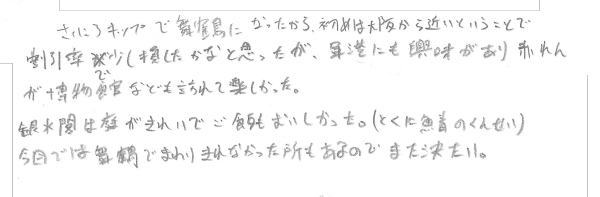 さいころキップで舞鶴になったから、初めは大阪から近いということで
割引率が少し損したかなと思ったが、軍港にも興味があり赤れん
が博物館なども訪れて楽しかった。
銀水閣は庭がきれいでご飯もおいしかった。(とくに魚のくんせい)
今回では舞鶴でまわりきれなかった所もあるのでまた来たい。